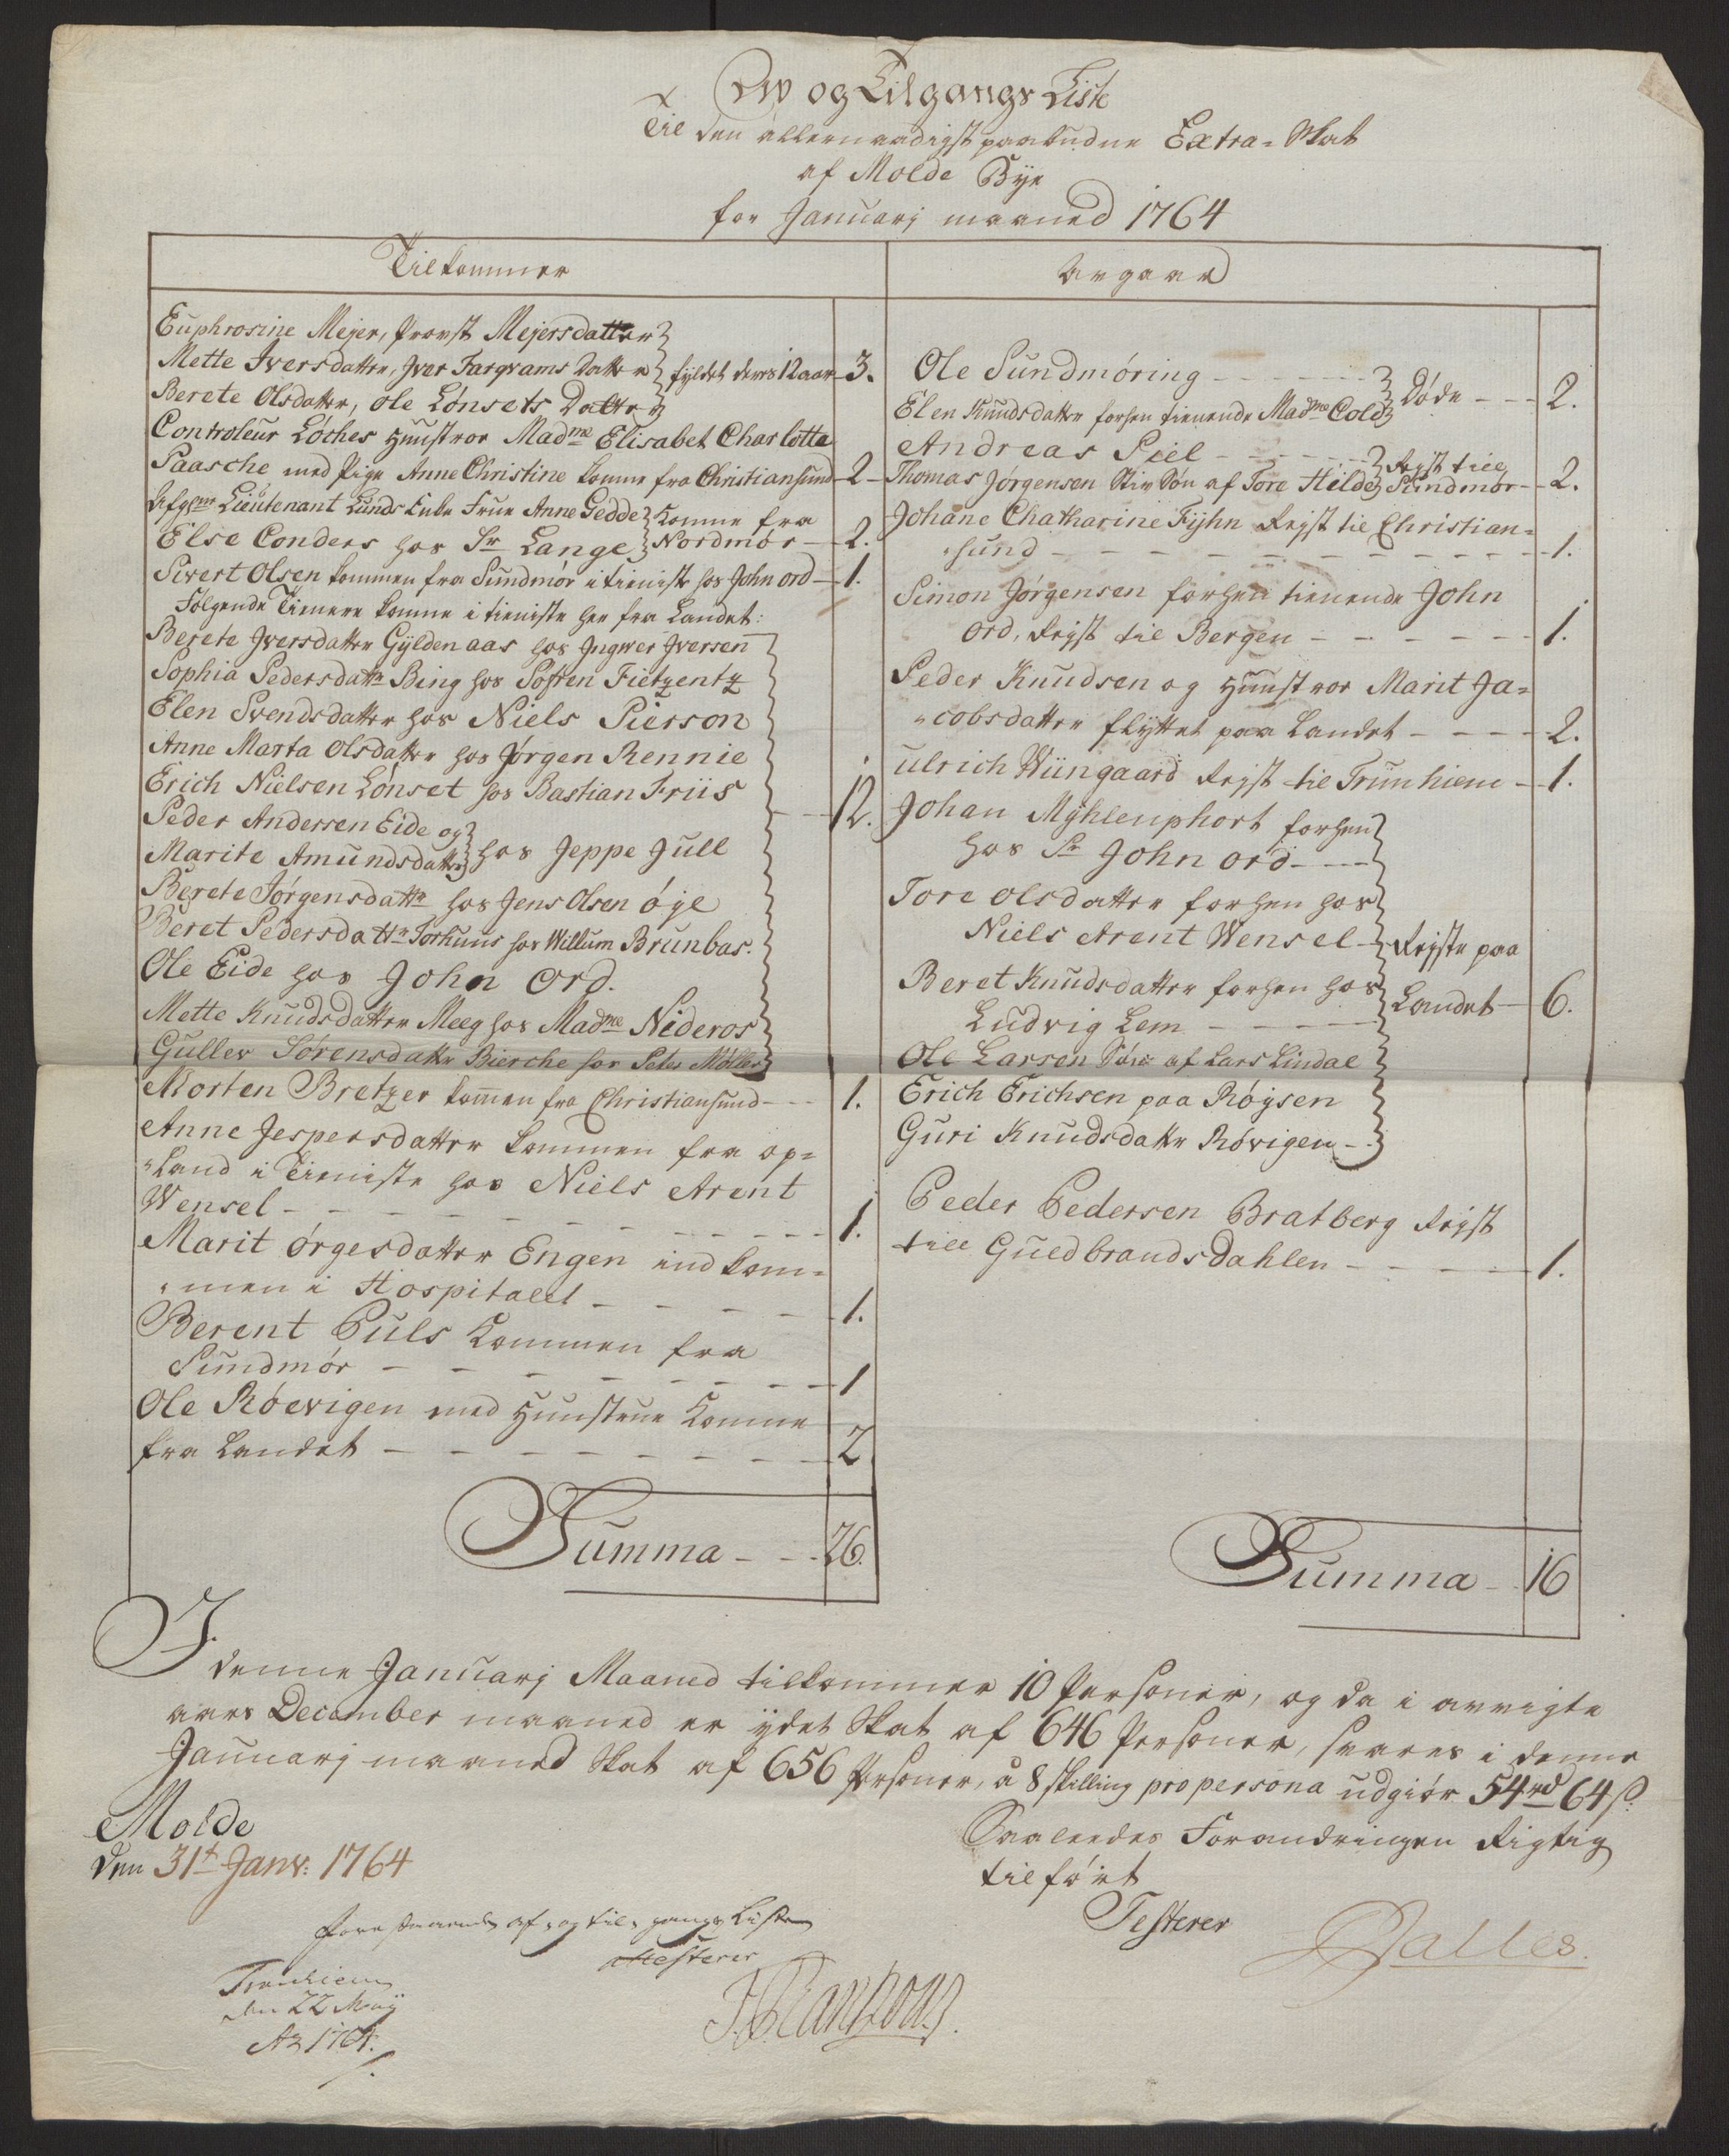 Av og Tilgangs Liste
Til den allernaadigst paabudne Extra-Skat
af Molde Bye
for Januarj maaned 1764
Tilkommer
Euphrosine Mejer, Provst Mejersdatter
Mette Iversdatter, Iver Farqvams Datter fyldt deres 12 aar 3.
Berete Olsdatter, Ole Lønsets Datter
Controleur Løches Hunstroe Madme Elisabet Charlotte
Paasche med Pige Anne Christine komne fra Christiansund 2
Afgne Lieutenant Lunds Enke Frue Anne Gedde komne fra
Else Conders hos Sr Lange Nordmør 2.
Sivert Olsen kommen fra Sundmør i tieniste hos John Ord 1.
Følgende Tienere komne i tieniste her fra Landet:
Berete Iversdatter Gyldenaas hos Ingwer Iversen
Sophia Pedersdattr Bing hos Posten Fietzentz
Elen Svendsdatter hos Niels Pierson
Anne Marta Olsdatter hos Jørgen Rennie
Erich Nielsen Lønset hos Bastian Friis
12.
Peder Andersen Eide og
Marite Amundsdatter hos Jeppe Jull
Berete Jørgensdattr hos Jens Olsen Øye
Beret Pedersdattr Torhuus hos Willum Brunbas.
Ole Eide hos John Ord.
Mette Knudsdatter Meeg hos Madme Nideros
Guller Sørensdattr Bierche hos Peter Møller
Morten Bretzer komen fra Christiansund 1.
Anne Jespersdatter kommen fra op=
land i Tieniste hos Niels Arent
Wensel 1.
Marit Ørgesdatter Engen indkom=
men i Hospitalet 1.
Berent Puls kommen fra
Sundmør 1
Ole Røevigen med Hunstrue komne
fra Landet 2
Summa 26.
Avgaar
Ole Sundmøring
Døde 2.
Elen Knudsdatter forhen tienende Madme Cold
Andreas Piel Rejst till
Thomas Jørgensen Stiv Søn af Tore Hilde Sundmør 2.
Johane Chatharine Fyhn Rejst til Christian=
sund 1.
Simon Jørgensen forhen tienende John
Ord, Rejst til Bergen 1.
Peder Knudsen og Hunstroe Marit Ja=
cobsdatter flyttet paa Landet 2.
Ulrich Wiingaard Rejst til Trunhiem 1.
Johan Myhlenphort forhen
hos Sr John Ord
Tore Olsdatter forhen hos
Niels Arent Wensel Rejste paa
Beret Knudsdatter forhen hos
Landet 6.
Ludvig Lem
Ole Larsen Søn af Lars Lindal
Erich Erichsen paa Røysen
Guri Knudsdattr Røvigen
Peder Pedersen Bratberg Rejst
till Guldbrandsdahlen 1.
Summa 16
I denne Januarj Maaned tilkommer 10 Personer, og da i avvigte
aars December maaned er ydet Skat af 646 Personer, svares i denne
Januarj maaned Skat af 656 Personer, à 8 skilling pro persona udgiør 54 rd 64 s.
Molde
den 31t Janv: 1764
Saaleedes Forandringen Rigtig
tilført
Testerer
Dalles.
forestaaende af og til gangs Liste
attesterer
Trondhiem
den 22 Maij
Ao 1764.